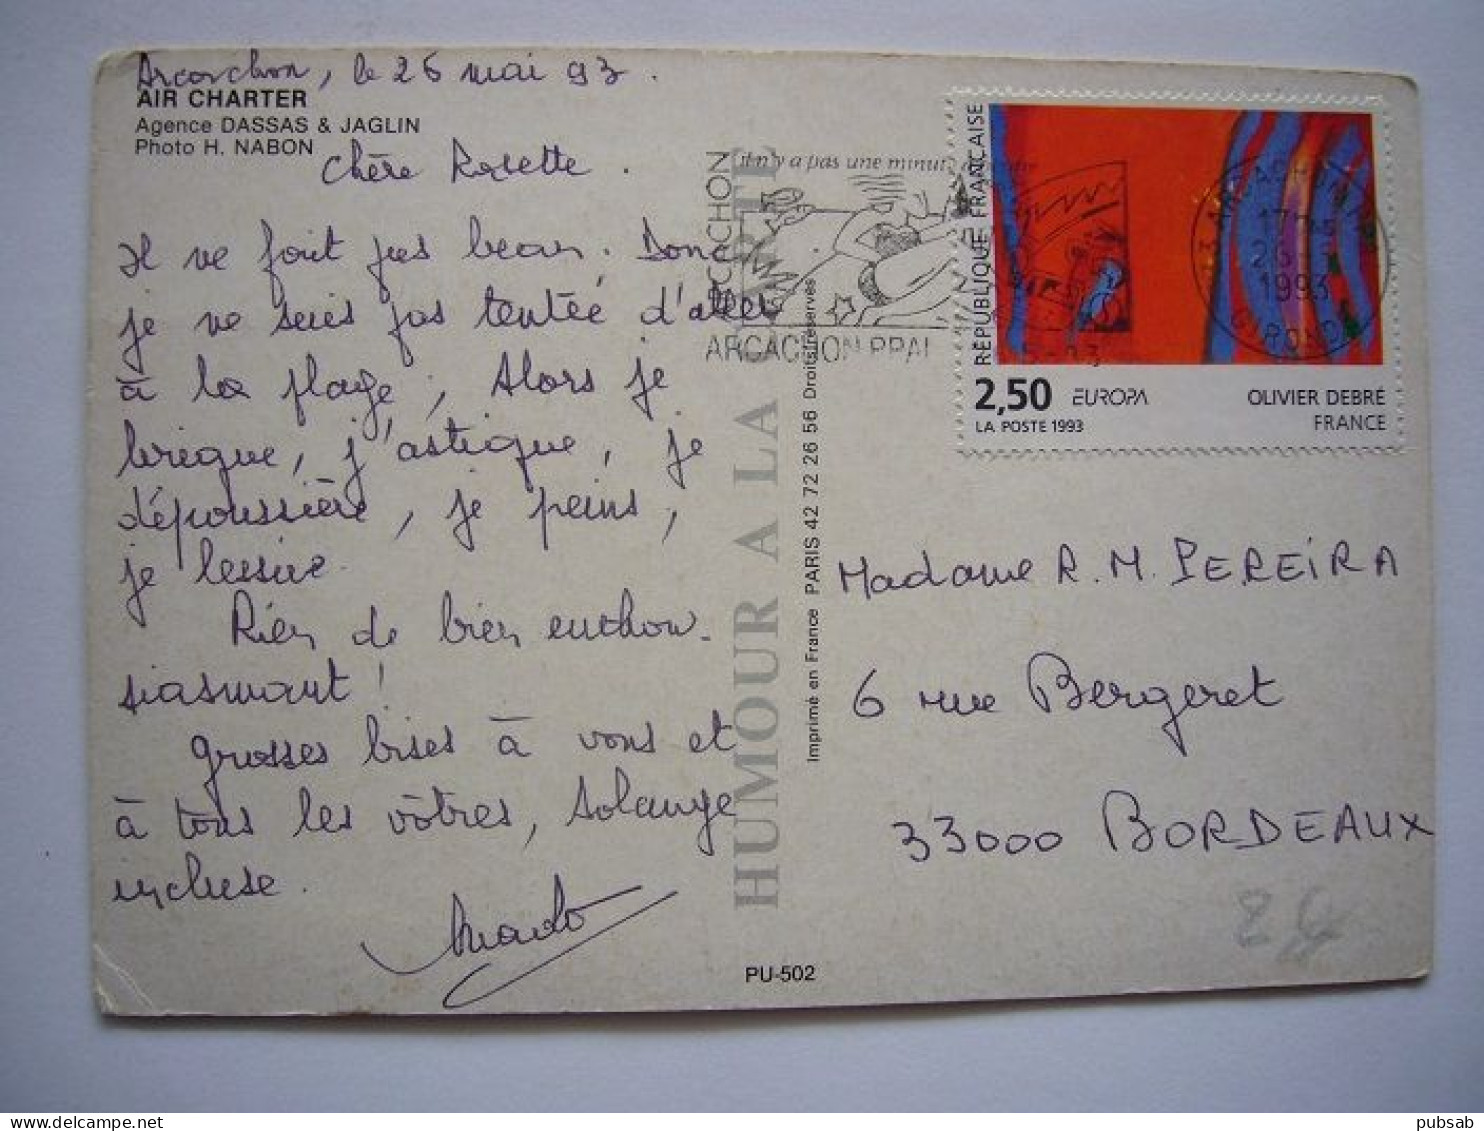 Arcachon, le 26 mai 93.
AIR CHARTER
Agence DASSAS & JAGLIN
Photo H. NABON
Chère Rosette.
Il ne fait pas beau. Donc
je ne suis pas tentée d'aller
à la plage, Alors je
brique, j'astique, je
dépoussière, je peins,
je lessive.
Rien de bien enthou-
siasmant!
Grosses bises à vous et
à tous les vôtres, Solange
incluse.
PU-502
HUMOUR A LA CARTE
Imprimé en France PARIS 42 72 26 56 Droits réservés
ARCACHON
il n'y a pas une minute
ARCACHON PPAL
ARCACHON
1993
GIRONDE
RÉPUBLIQUE FRANÇAISE
2,50 EUROPA
LA POSTE 1993
OLIVIER DEBRÉ
FRANCE
Madame R. M. PEREIRA
6 rue Bergeret
33000 BORDEAUX
pubsab